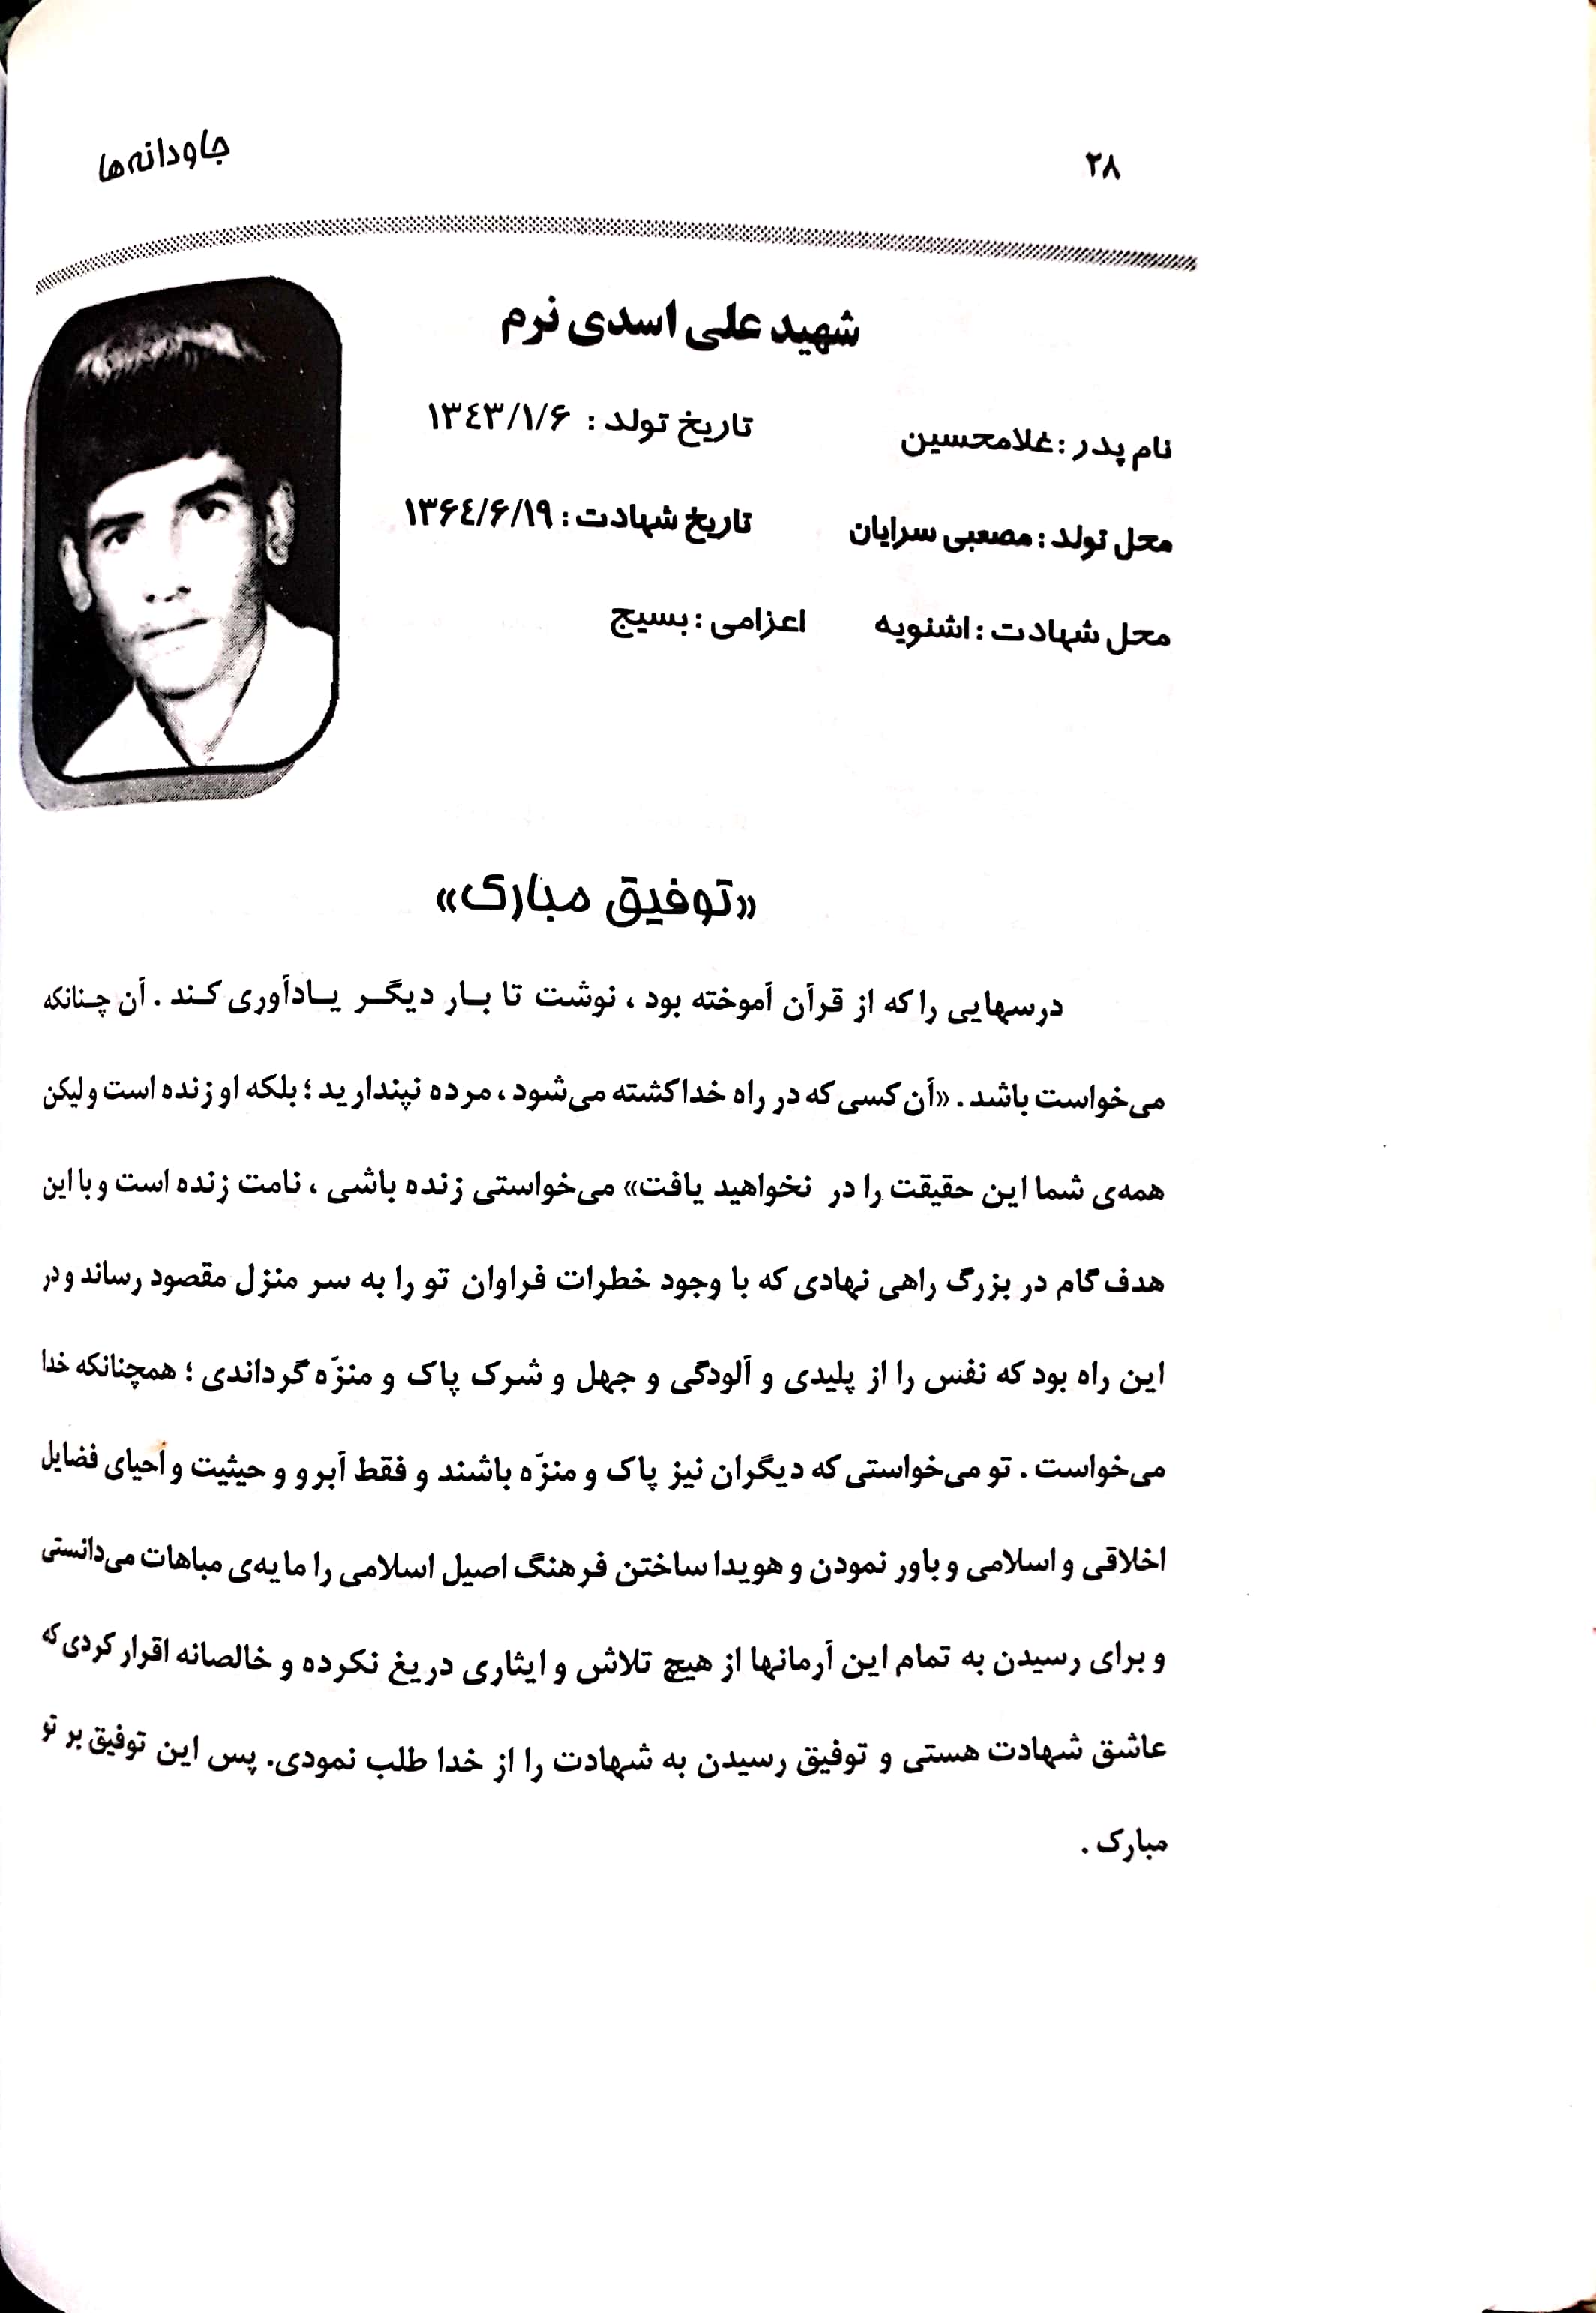 ۲۸
جاودانه‌ها
شهید علی اسدی نرم
نام پدر : غلامحسین تاریخ تولد : ۱۳٤۳/۱/۶
محل تولد : مصعبی سرایان تاریخ شهادت : ۱۳۶٤/۶/۱۹
محل شهادت : اشنویه اعزامی : بسیج
«توفیق مبارک»
درسهایی را که از قرآن آموخته بود ، نوشت تا بـار دیگـر یـادآوری کـند . آن چـنانکه
می‌خواست باشد . «آن کسی که در راه خدا کشته می‌شود ، مرده نپندارید ؛ بلکه او زنده است و لیکن
همه‌ی شما این حقیقت را در نخواهید یافت» می‌خواستی زنده باشی ، نامت زنده است و با این
هدف گام در بزرگ راهی نهادی که با وجود خطرات فراوان تو را به سر منزل مقصود رساند و در
این راه بود که نفس را از پلیدی و آلودگی و جهل و شرک پاک و منزّه گرداندی ؛ همچنانکه خدا
می‌خواست . تو می‌خواستی که دیگران نیز پاک و منزّه باشند و فقط آبرو و حیثیت و احیای فضایل
اخلاقی و اسلامی و باور نمودن و هویدا ساختن فرهنگ اصیل اسلامی را مایه‌ی مباهات می‌دانستی
و برای رسیدن به تمام این آرمانها از هیچ تلاش و ایثاری دریغ نکرده و خالصانه اقرار کردی که
عاشق شهادت هستی و توفیق رسیدن به شهادت را از خدا طلب نمودی. پس این توفیق بر تو
مبارک .